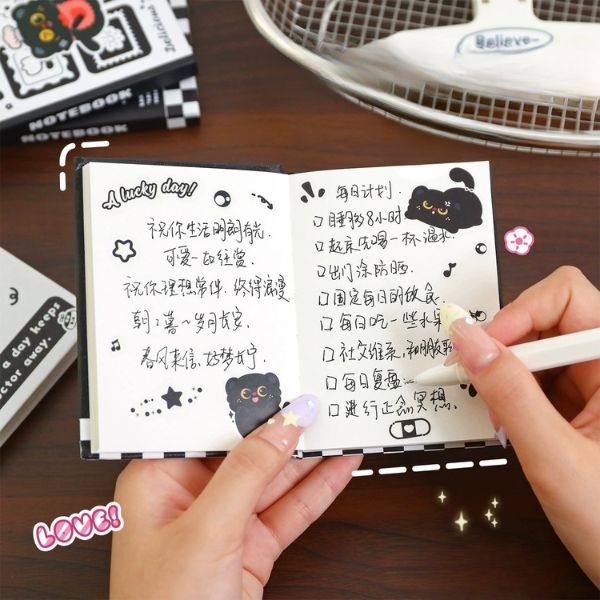 Delicious
NOTEBOOK
NOTEBOOK
Believe~
a day keeps
ctor away.
A lucky day!
祝你生活明朗有光.
可爱一如往常
祝你理想常伴. 终得浪漫
朝朝暮暮~岁月长安
春风来信. 好梦长宁
每日计划.
□睡够8小时
□起床先喝一杯温水.
□出门涂防晒.
□固定每日的饮食.
□每日吃一些水果
□社交维系,和朋友聊
□每日复盘
□进行正念冥想.
LOVE!